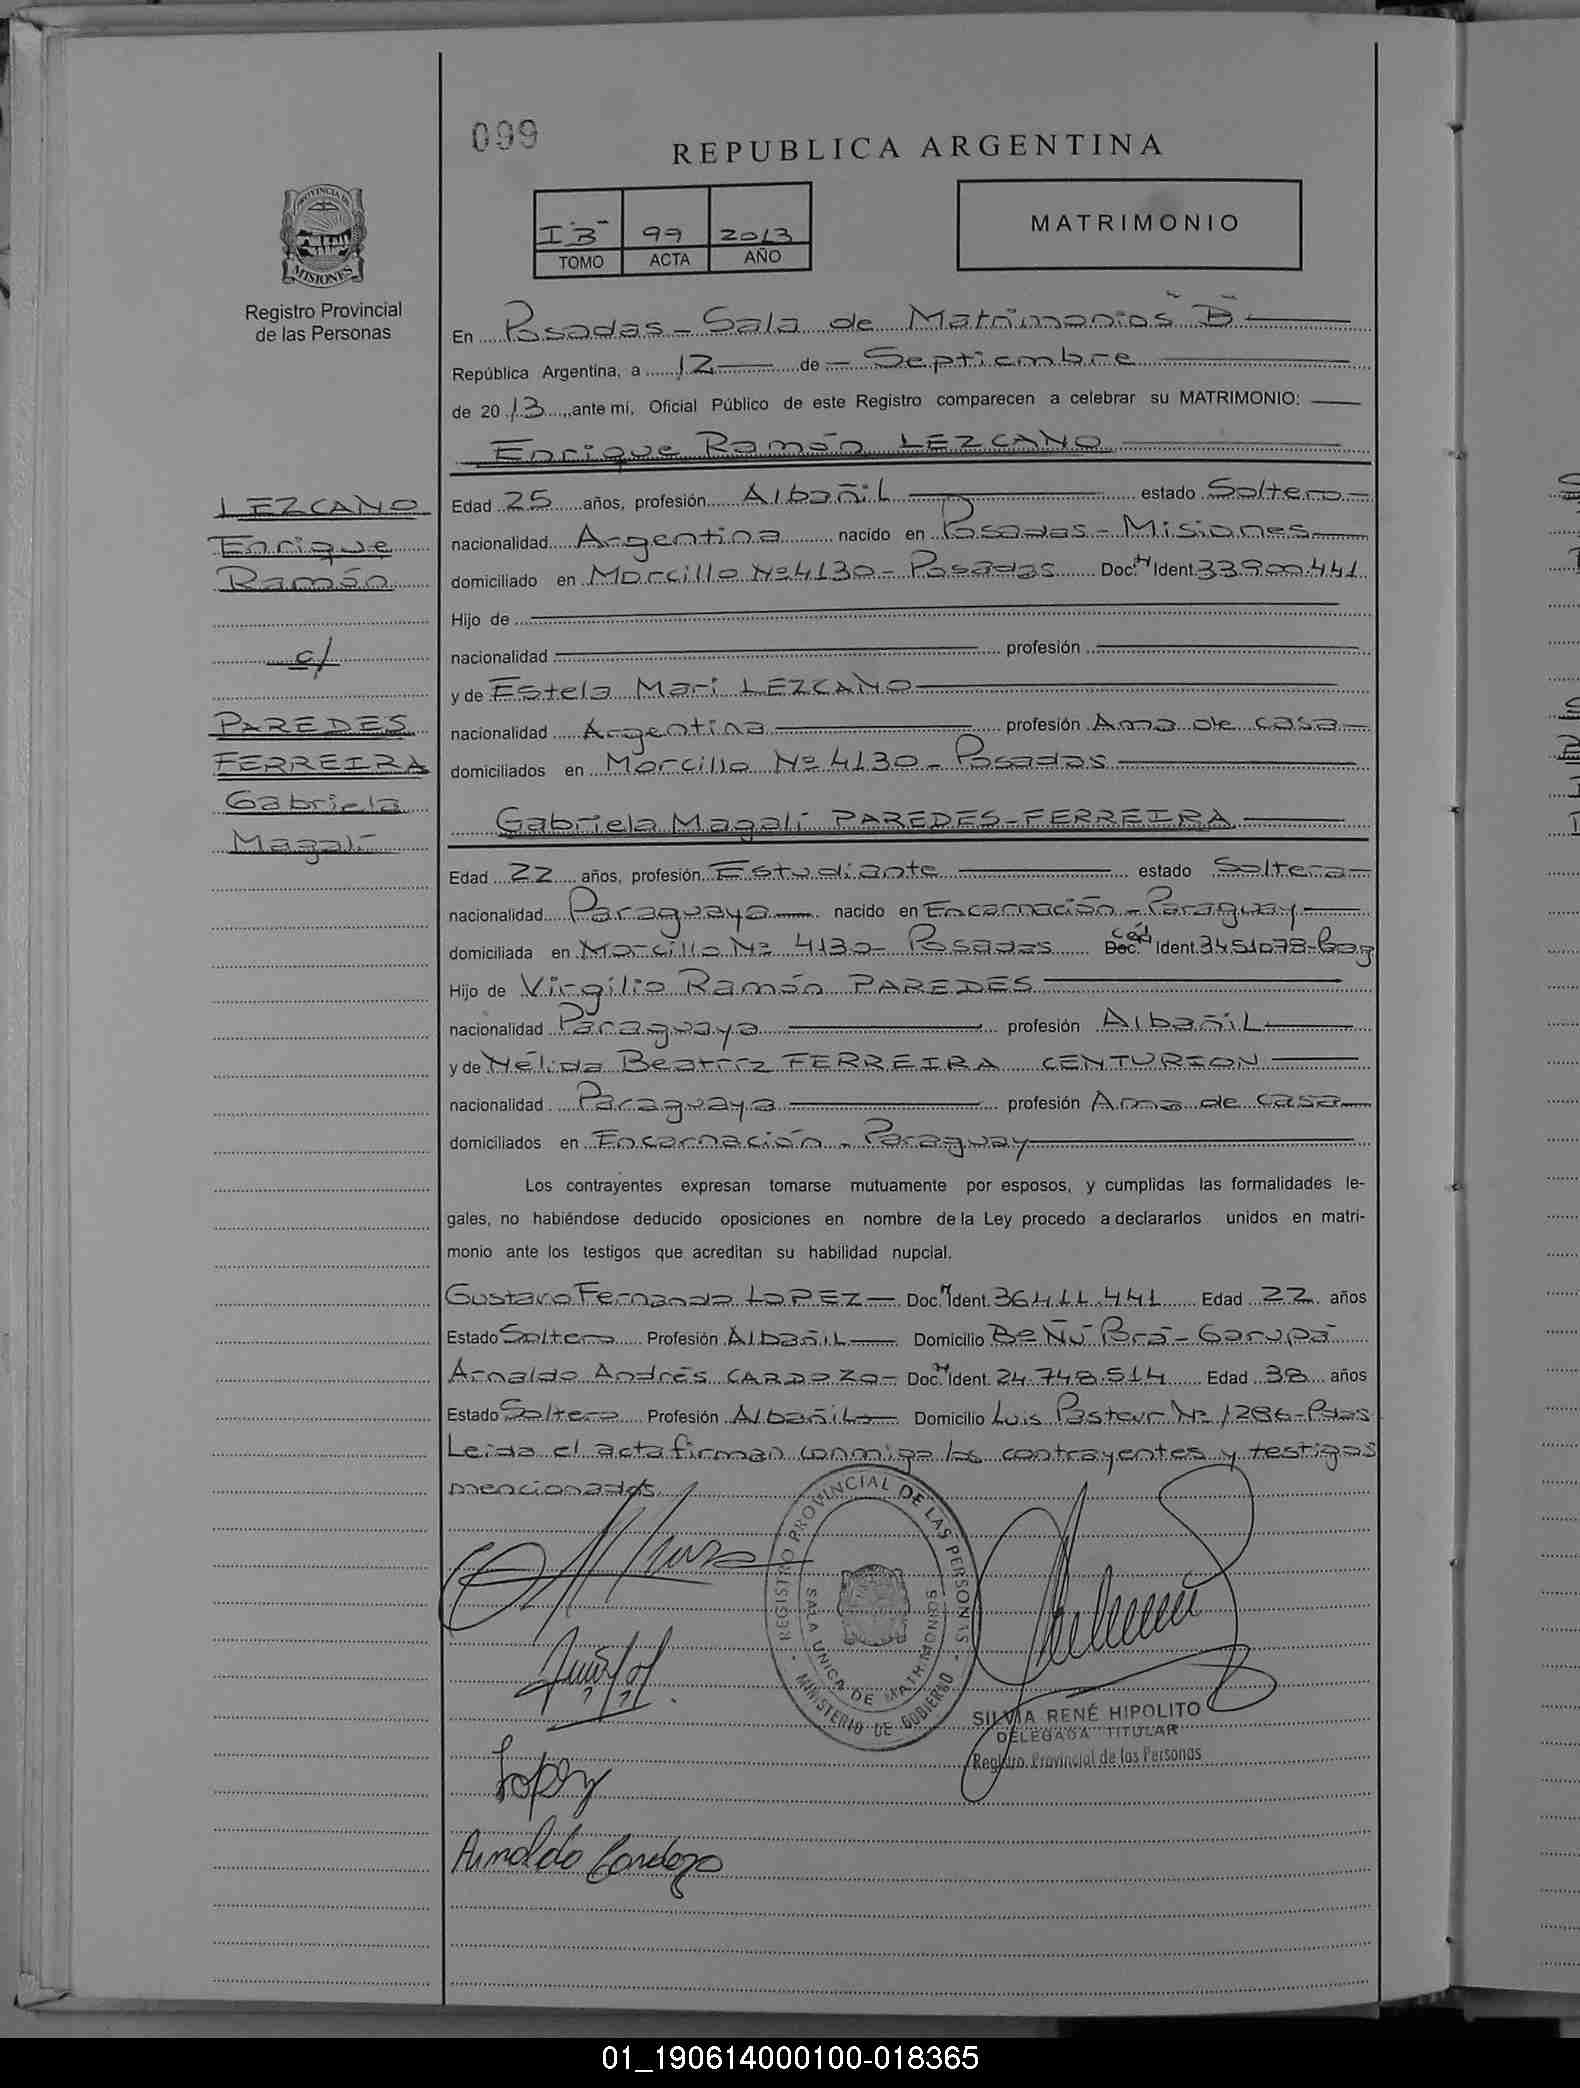 099
REPUBLICA ARGENTINA
I "B" 99 2013
TOMO ACTA AÑO
MATRIMONIO
PROVINCIA DE
MISIONES
Registro Provincial
de las Personas
En Posadas - Sala de Matrimonios "B"
República Argentina, a 12 de Septiembre
de 2013, ante mí, Oficial Público de este Registro comparecen a celebrar su MATRIMONIO:
Enrique Ramón LEZCANO
LEZCANO
Enrique
Ramón
c/
PAREDES
FERREIRA
Gabriela
Magalí
Edad 25 años, profesión Albañil estado Soltero
nacionalidad Argentina nacido en Posadas - Misiones
domiciliado en Morcillo Nº 4130 - Posadas Doc. N. Ident. 33.900.441
Hijo de
nacionalidad profesión
y de Estela Mari LEZCANO
nacionalidad Argentina profesión Ama de casa
domiciliados en Morcillo Nº 4130 - Posadas
Gabriela Magalí PAREDES-FERREIRA
Edad 22 años, profesión Estudiante estado Soltera
nacionalidad Paraguaya nacido en Encarnación - Paraguay
domiciliada en Morcillo Nº 4130 - Posadas Doc. Ced. Ident. 3451078-Pag
Hijo de Virgilio Ramón PAREDES
nacionalidad Paraguaya profesión Albañil
y de Nélida Beatríz FERREIRA CENTURION
nacionalidad Paraguaya profesión Ama de casa
domiciliados en Encarnación - Paraguay
Los contrayentes expresan tomarse mutuamente por esposos, y cumplidas las formalidades le-
gales, no habiéndose deducido oposiciones en nombre de la Ley procedo a declararlos unidos en matri-
monio ante los testigos que acreditan su habilidad nupcial.
Gustavo Fernando LOPEZ Doc. N. Ident. 36.411.441 Edad 22 años
Estado Soltero Profesión Albañil Domicilio Bº Ñu Porá - Garupá
Arnaldo Andrés CARDOZO Doc. N. Ident. 24.748.514 Edad 38 años
Estado Soltero Profesión Albañil Domicilio Luis Pasteur Nº 1286 - Pdas
Leida el acta firman conmigo los contrayentes y testigos
mencionados
REGISTRO PROVINCIAL DE LAS PERSONAS
SALA UNICA DE MATRIMONIOS
MINISTERIO DE GOBIERNO
SILVIA RENÉ HIPOLITO
DELEGADA TITULAR
Registro Provincial de las Personas
Lopez
Arnaldo Cardozo
01_190614000100-018365